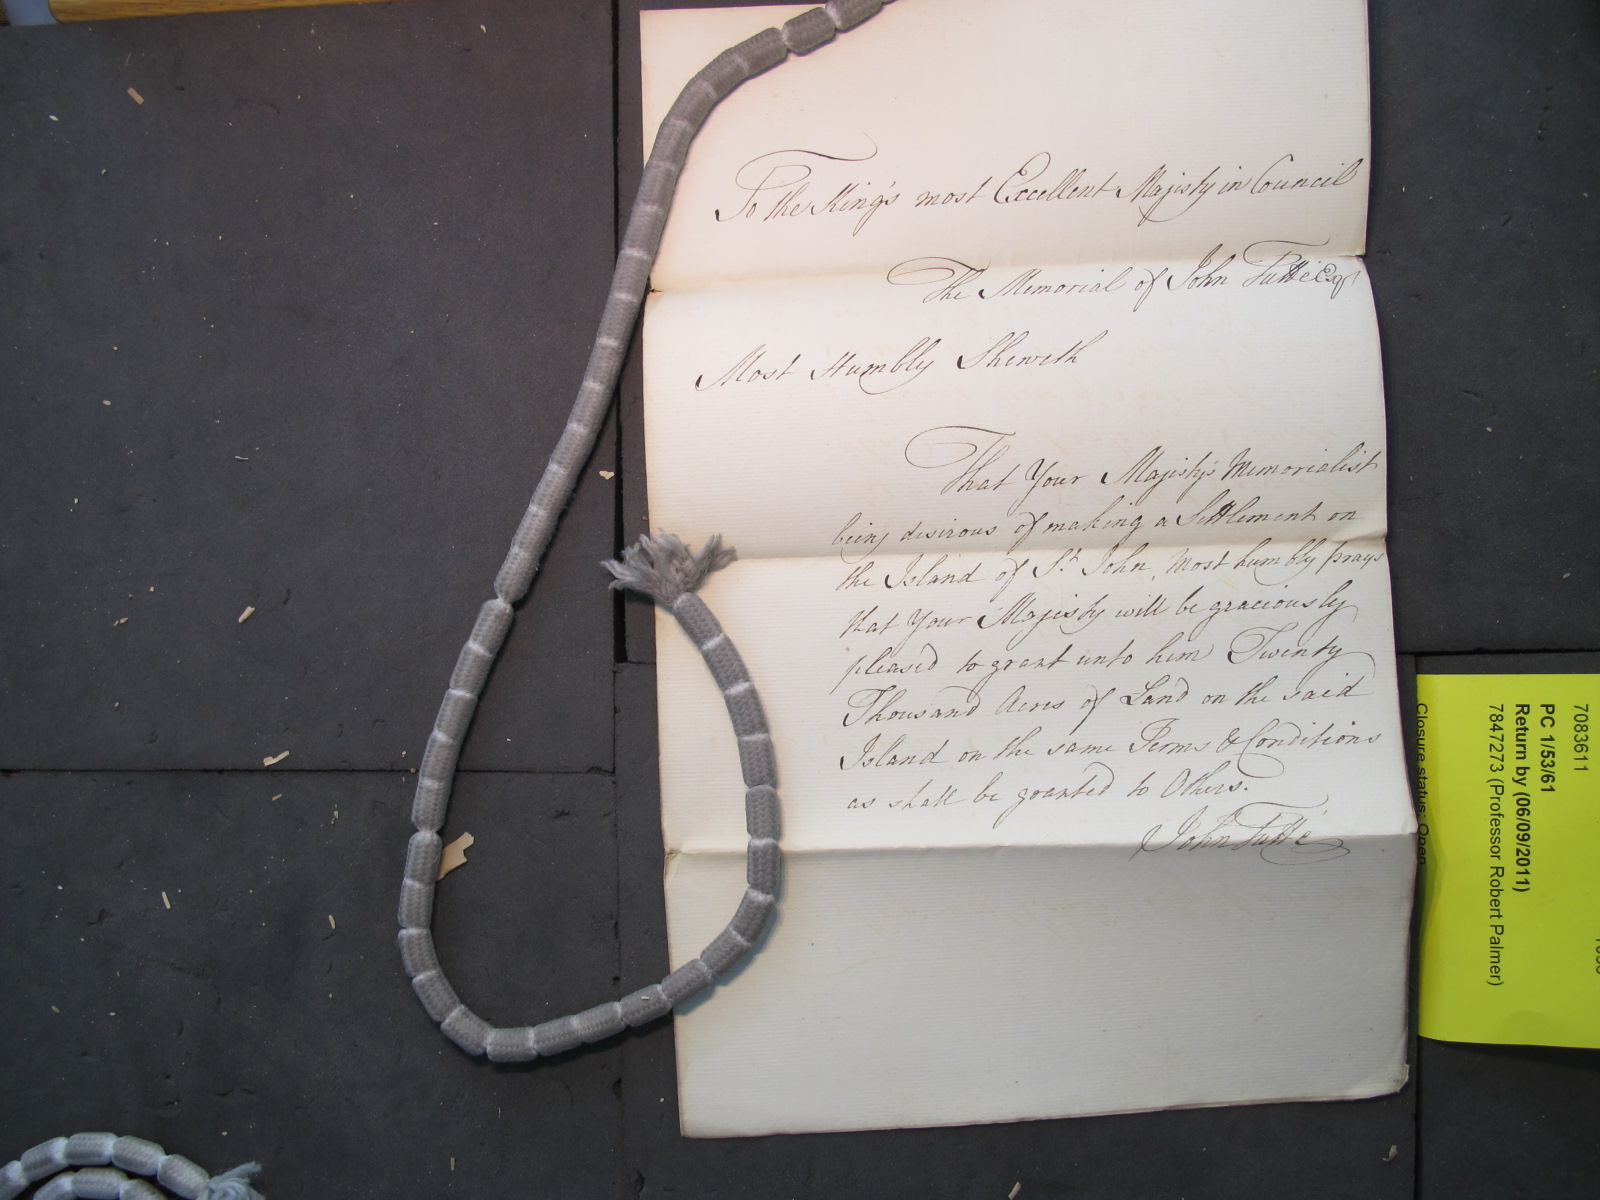 To the King's most Excellent Majesty in Council
The Memorial of John Tutté Esqr
Most Humbly Sheweth
That Your Majesty's Memorialist
being desirous of making a Settlement on
the Island of St. John, Most humbly prays
that Your Majesty will be graciously
pleased to grant unto him Twenty
Thousand Acres of Land on the said
Island on the same Terms & Conditions
as shall be granted to Others.
John Tutté
7083611
PC 1/53/61
Return by (06/09/2011)
7847273 (Professor Robert Palmer)
Closure status: Open